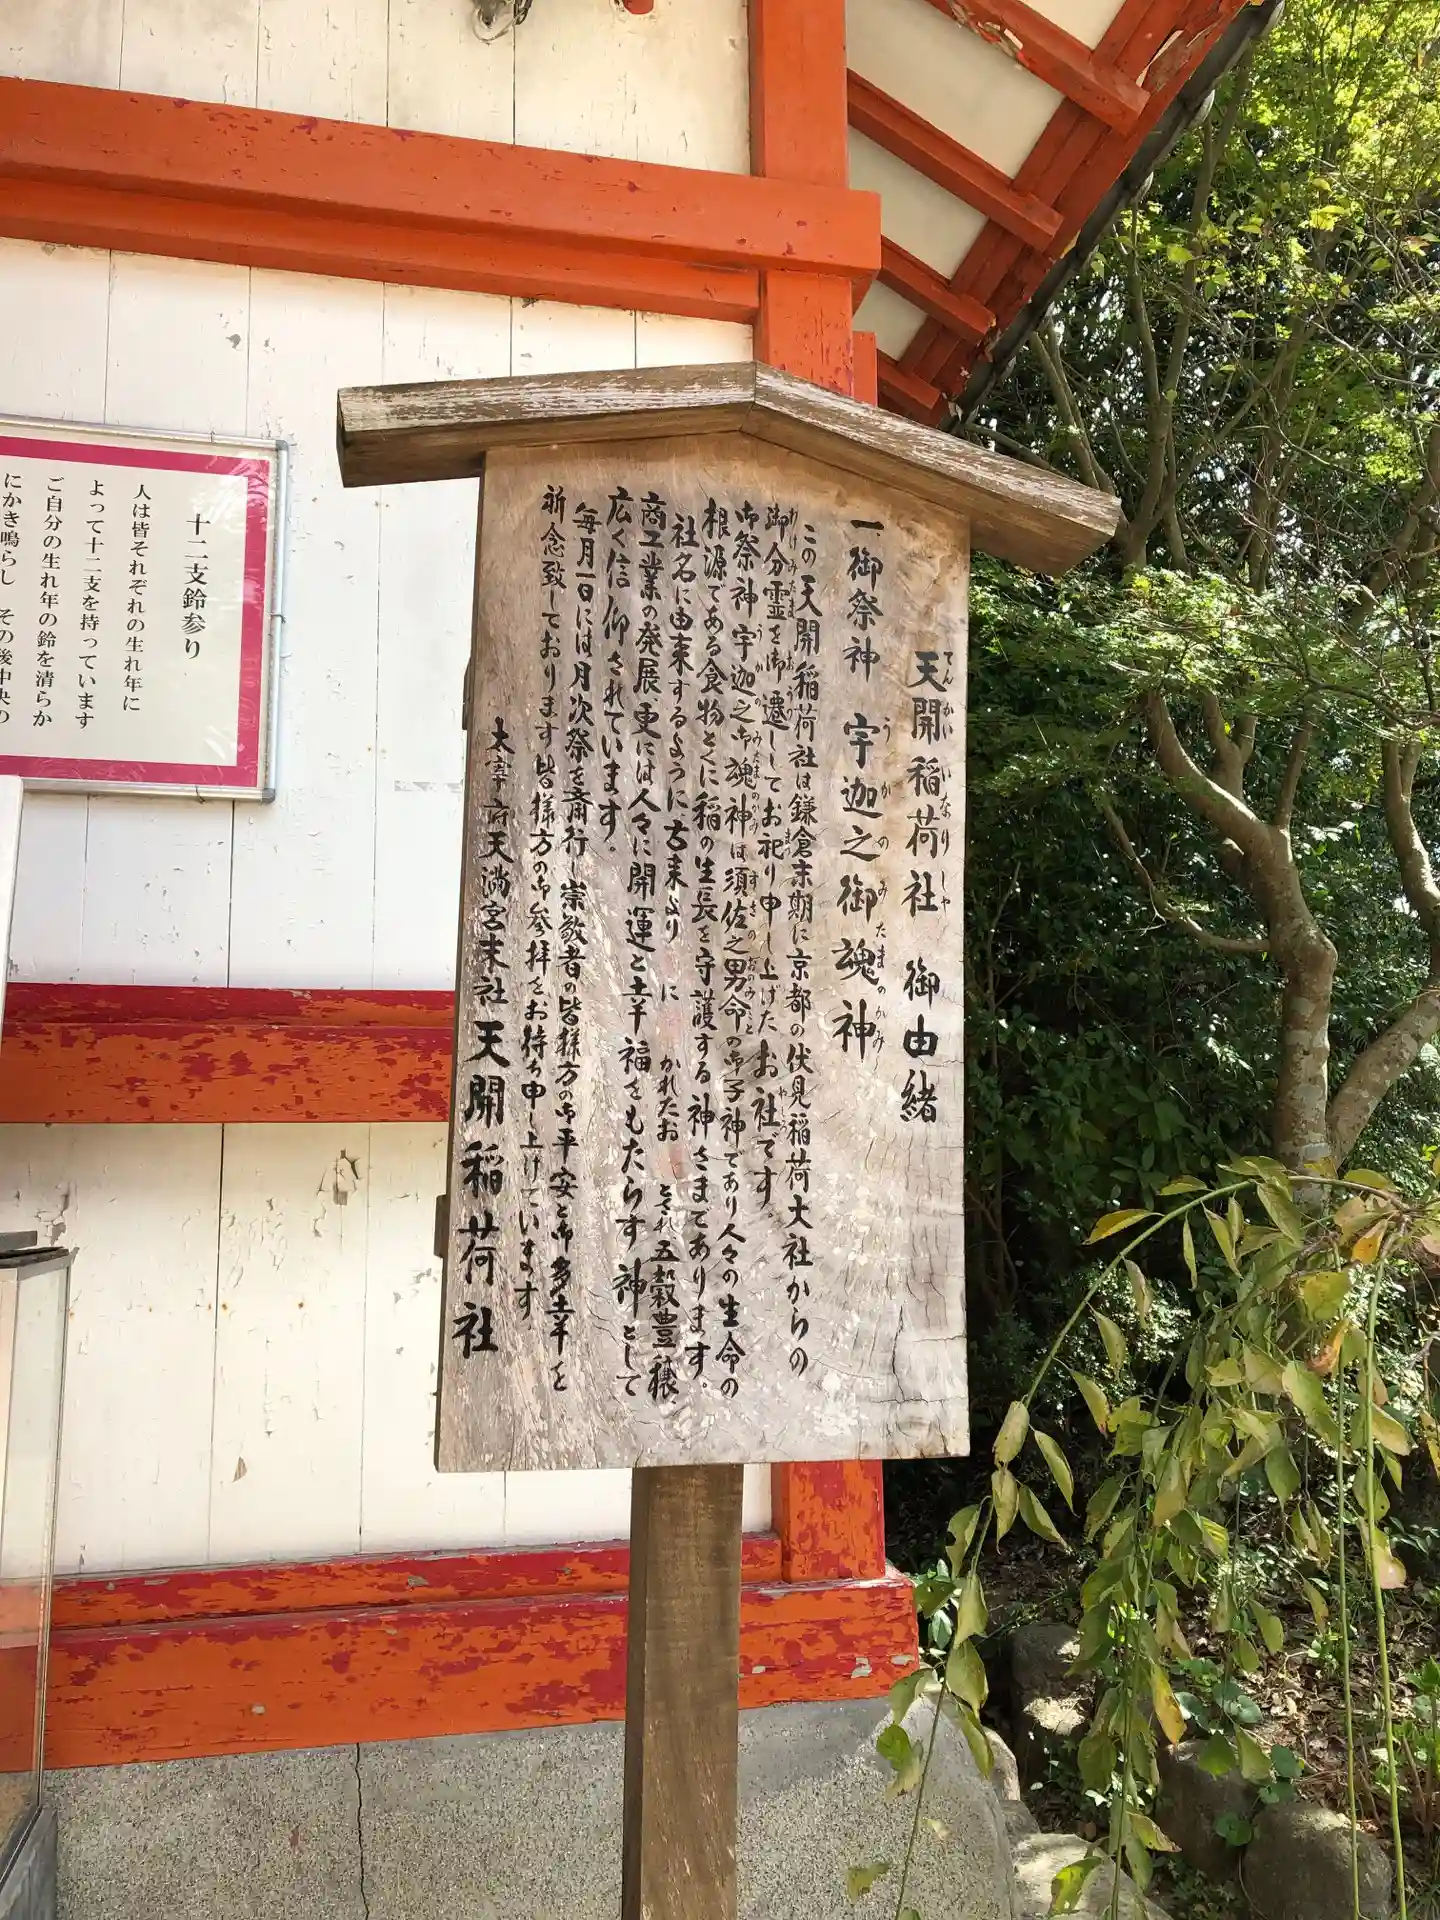 天開稲荷社 御由緒
てんかいいなりしゃ
一、御祭神 宇迦之御魂神
うかのみたまのかみ
この天開稲荷社は鎌倉末期に京都の伏見稲荷大社からの
御分霊を御遷してお祀り申し上げたお社です。
わけみたま おうつ まつ やしろ
御祭神宇迦之御魂神は須佐之男命の御子神であり人々の生命の
うかのみたまのかみ すさのおのみこと
根源である食物とくに稲の生長を守護する神さまであります。
社名に由来するように古来より に かれたお とされ五穀豊穣、
商工業の発展更には人々に開運と幸福をもたらす神として
広く信仰されています。
毎月一日には月次祭を斎行し崇敬者の皆様方の御平安と御多幸を
祈念致しております皆様方の御参拝をお待ち申し上げています
太宰府天満宮末社天開稲荷社
十二支鈴参り
人は皆それぞれの生れ年に
よって十二支を持っています
ご自分の生れ年の鈴を清らか
にかき鳴らし その後中央の